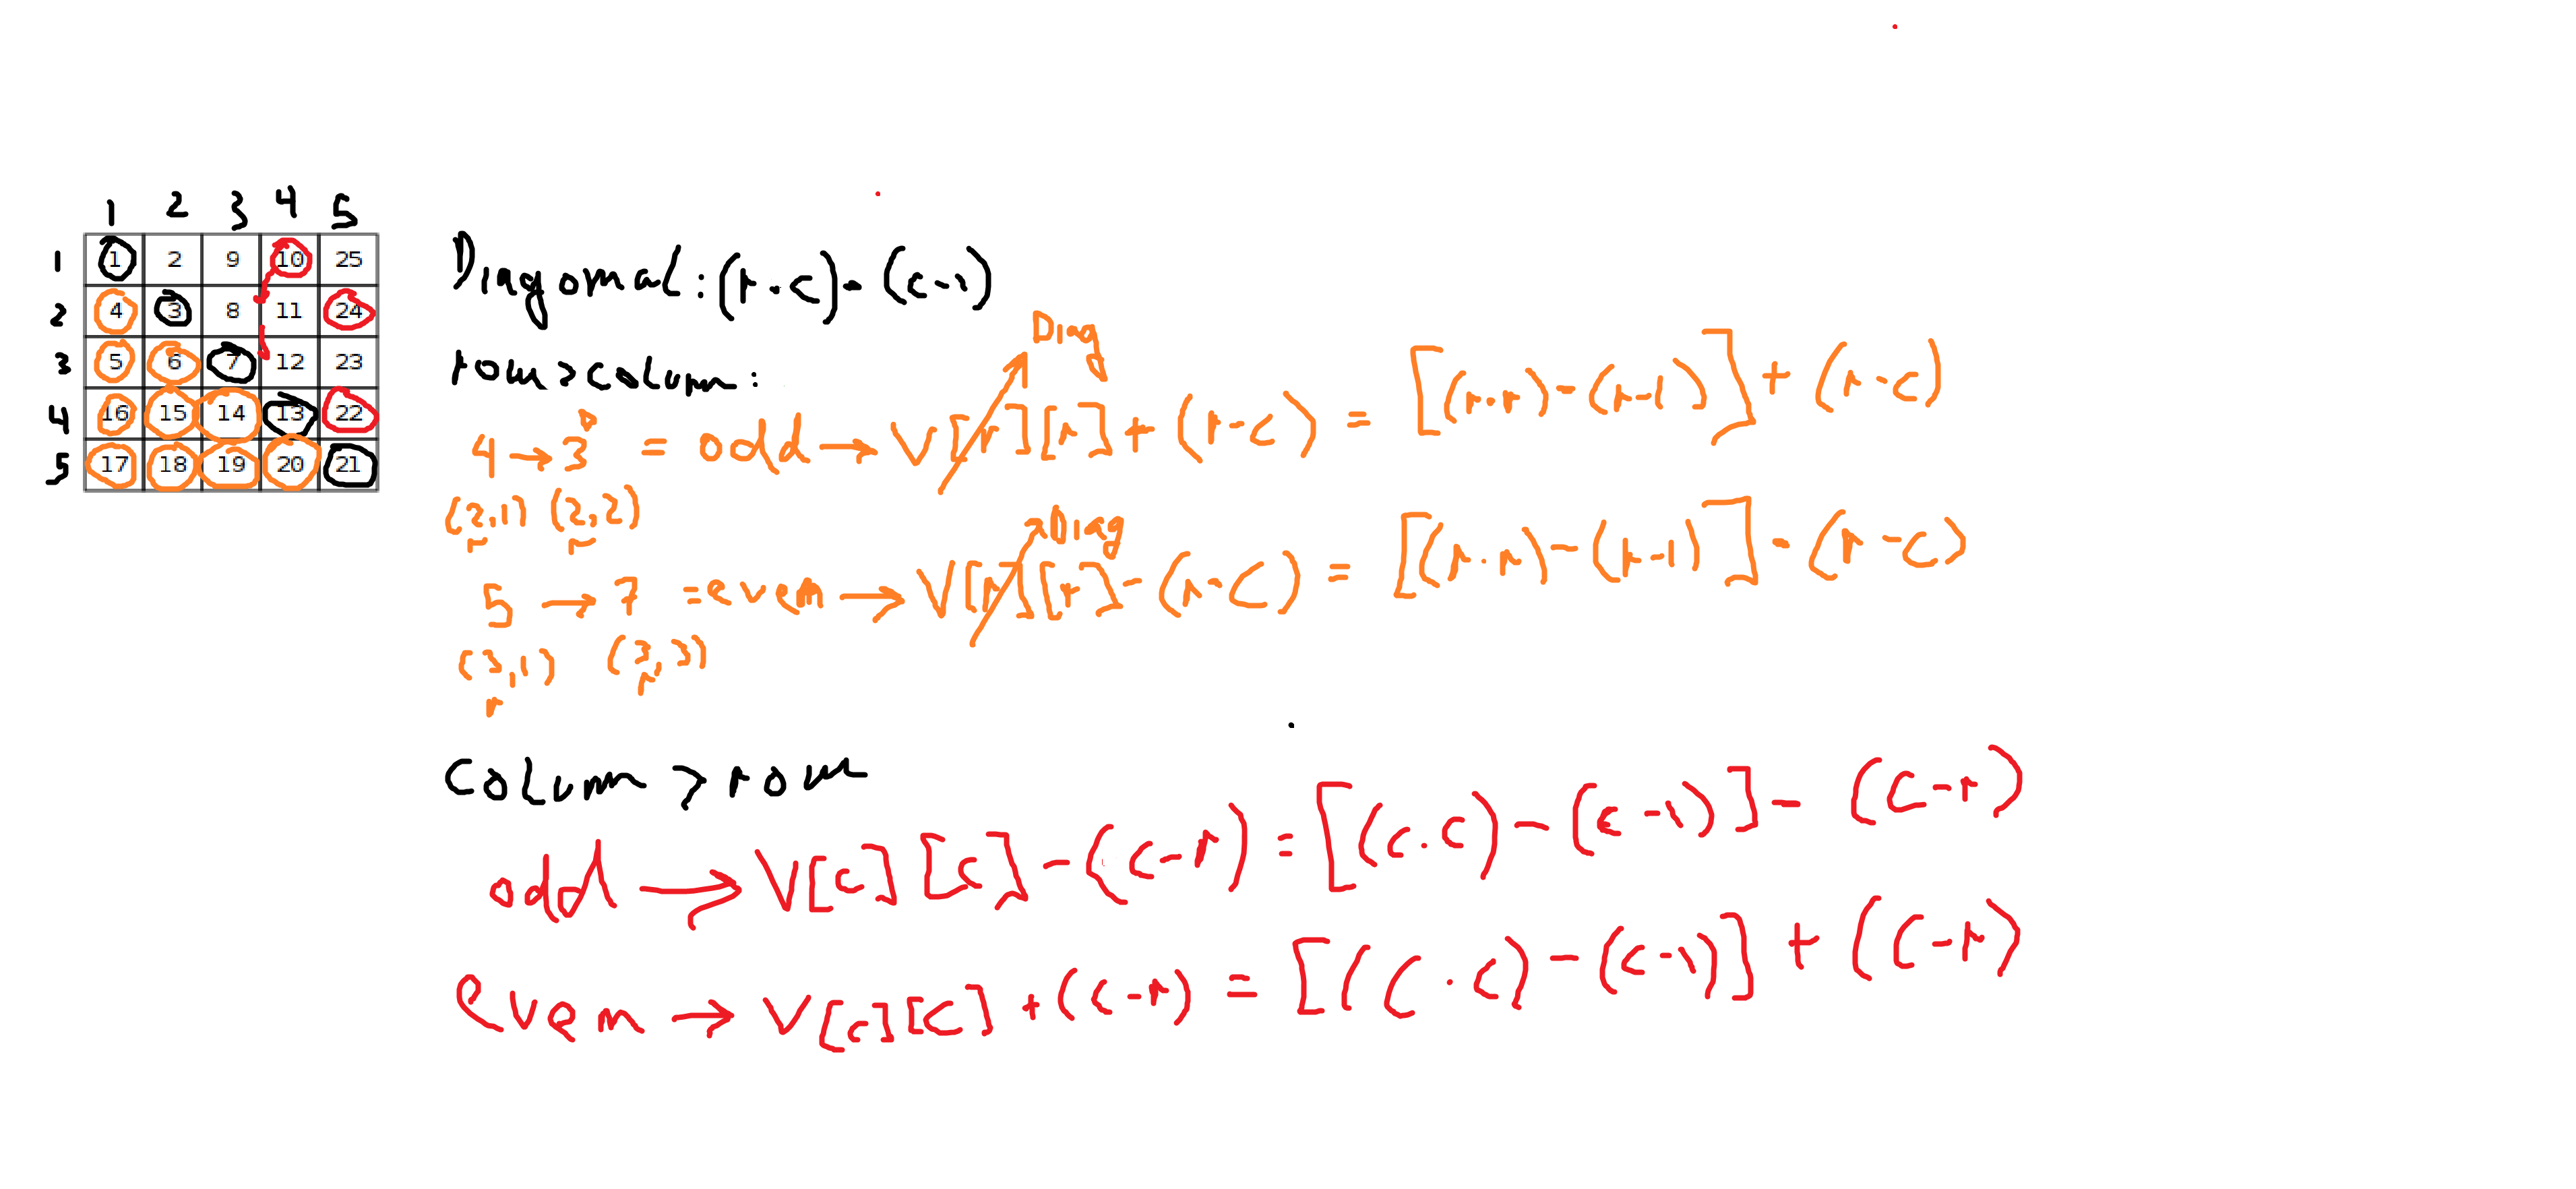 1 2 3 4 5
1 1 2 9 10 25
2 4 3 8 11 24
3 5 6 7 12 23
4 16 15 14 13 22
5 17 18 19 20 21
Diagonal: (r·c) - (c-1)
row > column:
Diag
4 → 3 = odd → V[r][r] + (r-c) = [(r·r) - (r-1)] + (r-c)
(2,1) (2,2)
r r
Diag
5 → 7 = even → V[r][r] - (r-c) = [(r·r) - (r-1)] - (r-c)
(3,1) (3,3)
r r
Column > row
odd → V[c][c] - (c-r) = [(c·c) - (c-1)] - (c-r)
even → V[c][c] + (c-r) = [(c·c) - (c-1)] + (c-r)